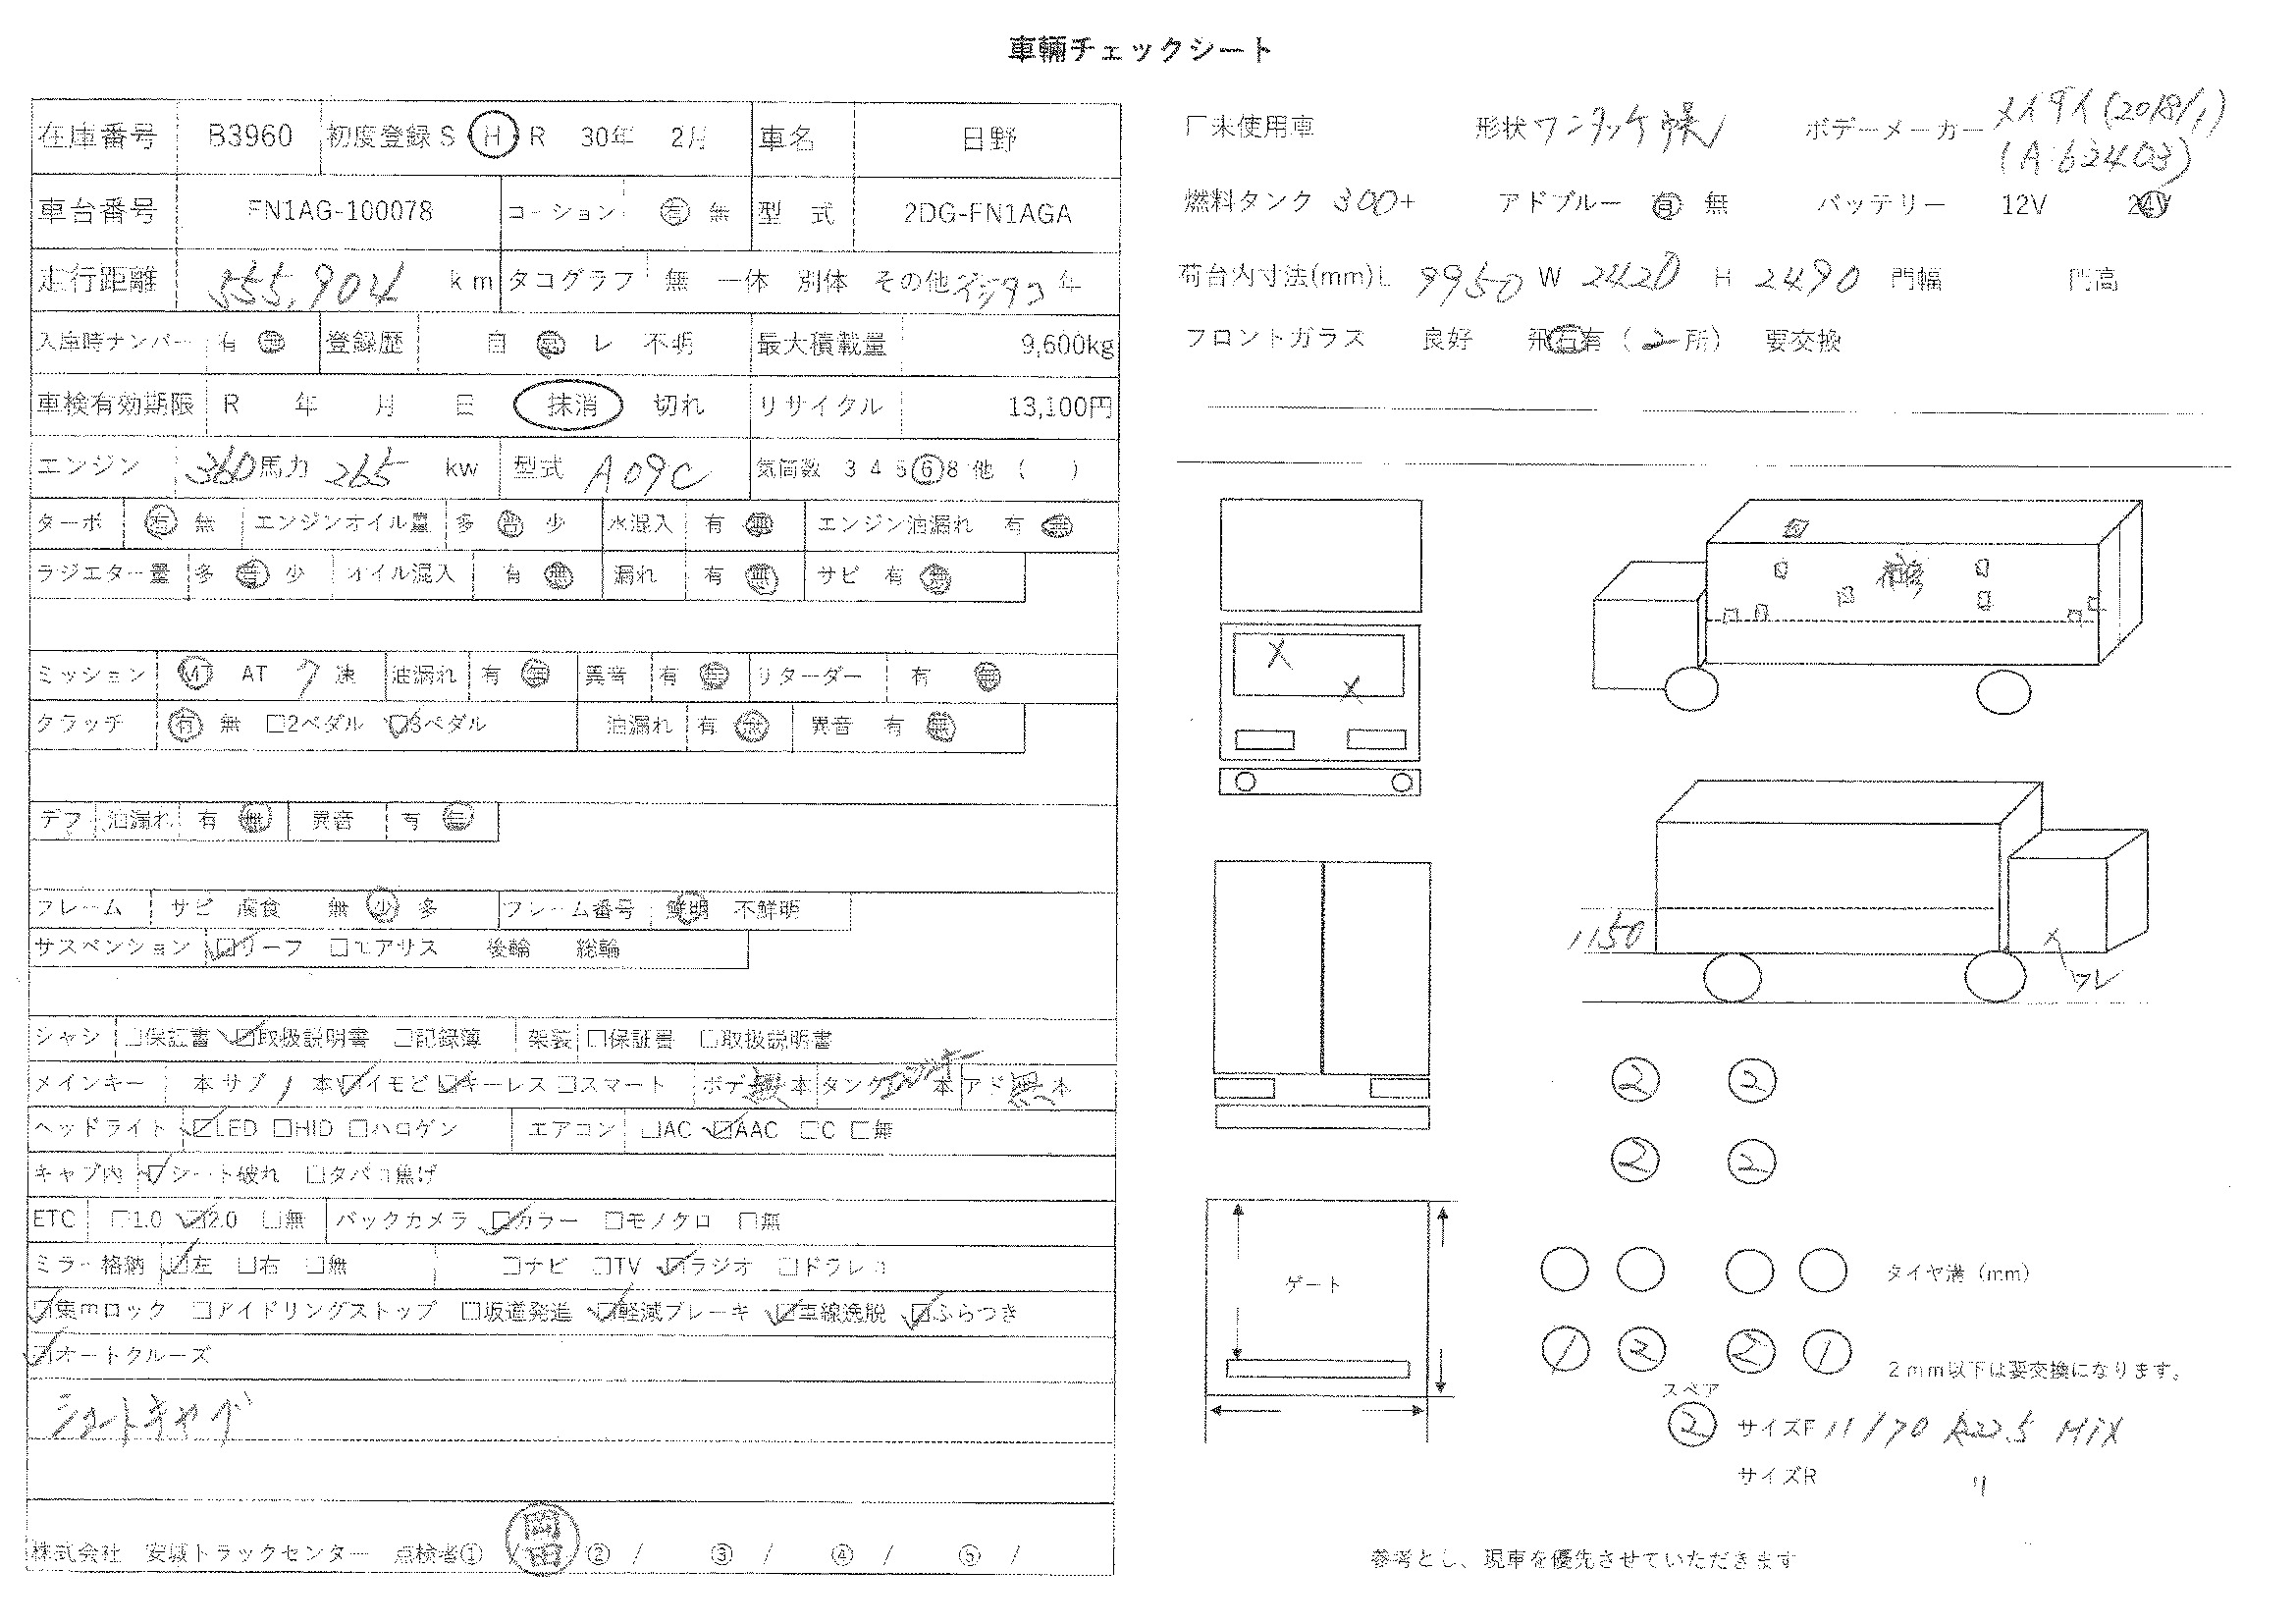 車輛チェックシート
在庫番号 B3960 初度登録 S H R 30年 2月 車名 日野
車台番号 FN1AG-100078 コーション 有 無 型 式 2DG-FN1AGA
走行距離 555,904 km タコグラフ 無 一体 別体 その他 デジタコ 年
入庫時ナンバー 有 無 登録歴 自 レ 不明 最大積載量 9,600kg
車検有効期限 R 年 月 日 抹消 切れ リサイクル 13,100円
エンジン 360馬力 265 kw 型式 A09C 気筒数 3 4 5 6 8 他 ( )
ターボ 有 無 エンジンオイル量 多 普 少 水混入 有 無 エンジン油漏れ 有 無
ラジエター量 多 普 少 オイル混入 有 無 漏れ 有 無 サビ 有 無
ミッション MT AT 7 速 油漏れ 有 無 異音 有 無 リターダー 有 無
クラッチ 有 無 □2ペダル ☑3ペダル 油漏れ 有 無 異音 有 無
デフ 油漏れ 有 無 異音 有 無
フレーム サビ 腐食 無 少 多 フレーム番号 鮮明 不鮮明
サスペンション ☑リーフ □エアサス 後輪 総輪
シャシ □保証書 ☑取扱説明書 □記録簿 架装 □保証書 □取扱説明書
メインキー 本 サブ 1 本 ☑イモビ ☑キーレス □スマート ボデー 無 本 タンク 本 アド 無 本
ヘッドライト ☑LED □HID □ハロゲン エアコン □AC ☑AAC □C □無
キャブ内 ☑シート破れ □タバコ焦げ
ETC □1.0 ☑2.0 □無 バックカメラ ☑カラー □モノクロ □無
ミラー格納 ☑左 □右 □無 □ナビ □TV ☑ラジオ □ドラレコ
☑集mロック □アイドリングストップ □坂道発進 ☑軽減ブレーキ ☑車線逸脱 ☑ふらつき
☑オートクルーズ
ショートキャブ
株式会社 安城トラックセンター 点検者① / 岡田 ② / ③ / ④ / ⑤ /
□未使用車 形状 ボデーメーカー (2018/1)
(A:62403)
燃料タンク 300+ アドブルー 有 無 バッテリー 12V 24V
荷台内寸法(mm)L 9950 W 2420 H 2490 門幅 門高
フロントガラス 良好 飛石有 ( 2 所) 要交換
補修
1150
ワレ
② ②
② ②
ゲート
タイヤ溝(mm)
① ② ② ①
2mm以下は要交換になります。
スペア
② サイズF 11/70 R22.5 MIX
サイズR 〃
参考とし、現車を優先させていただきます